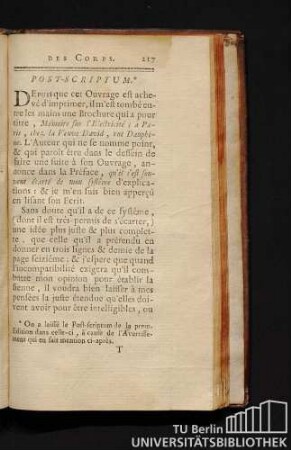 DES CORPS. 217
POST-SCRIPTUM.*
DEpuis que cet Ouvrage est ache-
vé d'imprimer, il m'est tombé en-
tre les mains une Brochure qui a pour
titre, Mémoire sur l'Electricité ; à Pa-
ris, chez la Veuve David, rue Dauphi-
ne. L'Auteur qui ne se nomme point,
& qui paroît être dans le dessein de
faire une suite à son Ouvrage, an-
nonce dans la Préface, qu'il s'est sou-
vent écarté de mon système d'explica-
tions : & je m'en suis bien apperçu
en lisant son Ecrit.
Sans doute qu'il a de ce système,
(dont il est très-permis de s'écarter,)
une idée plus juste & plus complet-
te, que celle qu'il a prétendu en
donner en trois lignes & demie de la
page seizième : & j'espere que quand
l'incompatibilité exigera qu'il com-
batte mon opinion pour établir la
sienne, il voudra bien laisser à mes
pensées la juste étendue qu'elles doi-
vent avoir pour être intelligibles, ou
* On a laissé le Post-scriptum de la prem.
Edition dans celle-ci, à cause de l'Avertisse-
ment qui en fait mention ci-après.
T
TU Berlin
UNIVERSITÄTSBIBLIOTHEK